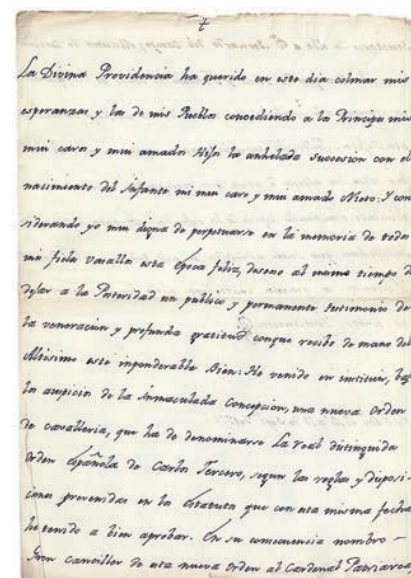 La Divina Providencia ha querido en este dia colmar mis
esperanzas y las de mis Pueblos concediendo a los Principes mis
mui caros y mui amados Hijos la anhelada succession con el
nacimiento del Infante mi mui caro y mui amado Nieto: Y con
siderando yo mui digna de perpetuarse en la memoria de todos
mis fieles vasallos esta época feliz, deseoso al mismo tiempo de
dejar a la Posteridad un publico y permanente testimonio de
la veneracion y profunda gratitud conque recibo de mano del
Altisimo este inponderable Bien: He venido en instituir, bajo
los auspicios de la Inmaculada Concepcion, una nueva Orden
de cavalleria, que ha de denominarse La real distinguida
Orden Española de Carlos Tercero, segun las reglas y disposi-
ciones prevenidas en los Estatutos que con esta misma fecha
he tenido a bien aprobar. En su consecuencia nombro
Gran canciller de esta nueva orden al Cardenal Patriarca,